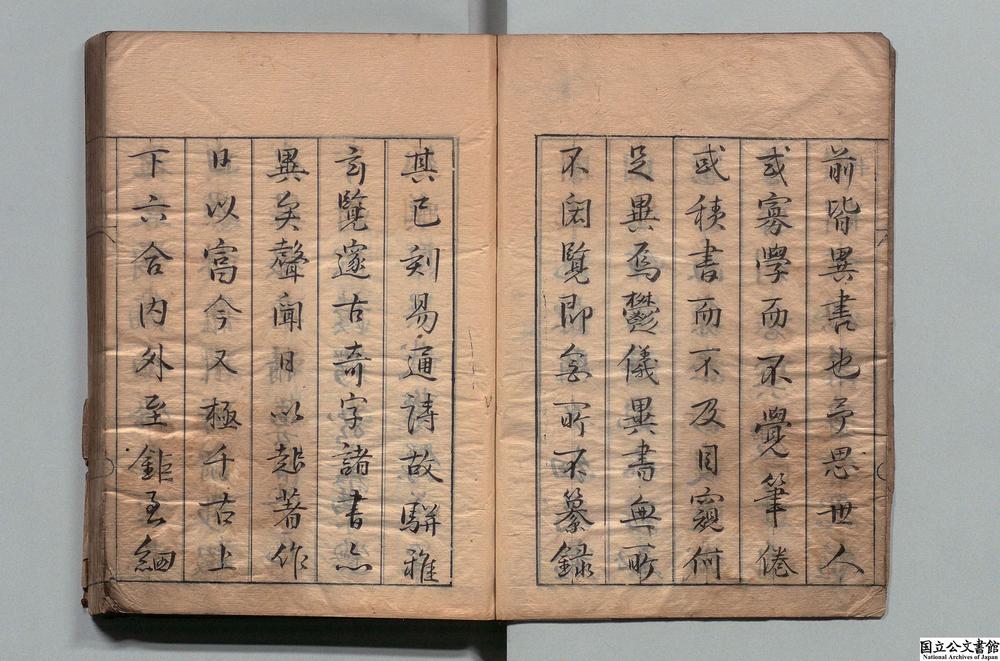 前皆異書也予思世人
或寡學而不覺筆倦
或積書而不及目窺何
足異焉鬱儀異書無所
不閱覽即無所不纂錄
其已刻易通詩故駢雅
玄覽邃古奇字諸書亦
異矣聲聞日以起著作
日以富今又極千古上
下六合內外至鉅至細
国立公文書館
National Archives of Japan